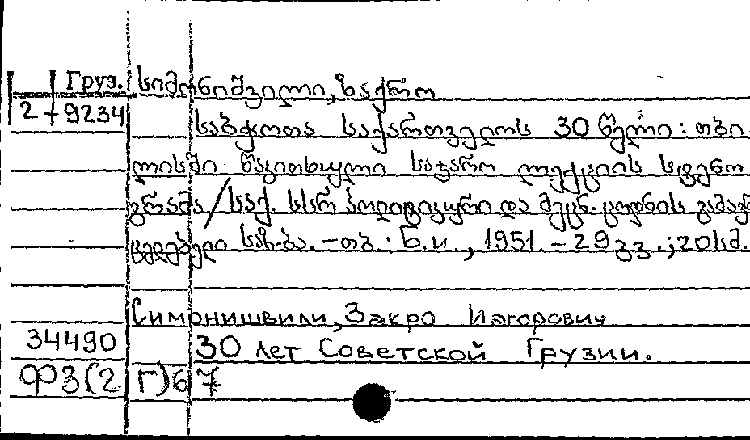 Груз. სიმონიშვილი, ზაქრო
2-9234
საბჭოთა საქართველოს 30 წელი: თბი-
ლისში წაკითხული საჯარო ლექციის სტენო
გრამა / საქ. სსრ პოლიტიკური და მეცნ. ცოდნის გამავრ
ცელებელი საზ-ბა. - თბ.: ბ.ი., 1951. - 29 გვ.; 20 სმ.
Симонишвили, Закро Иагорович
34490 30 лет Советской Грузии.
ФЗ(2Г)67